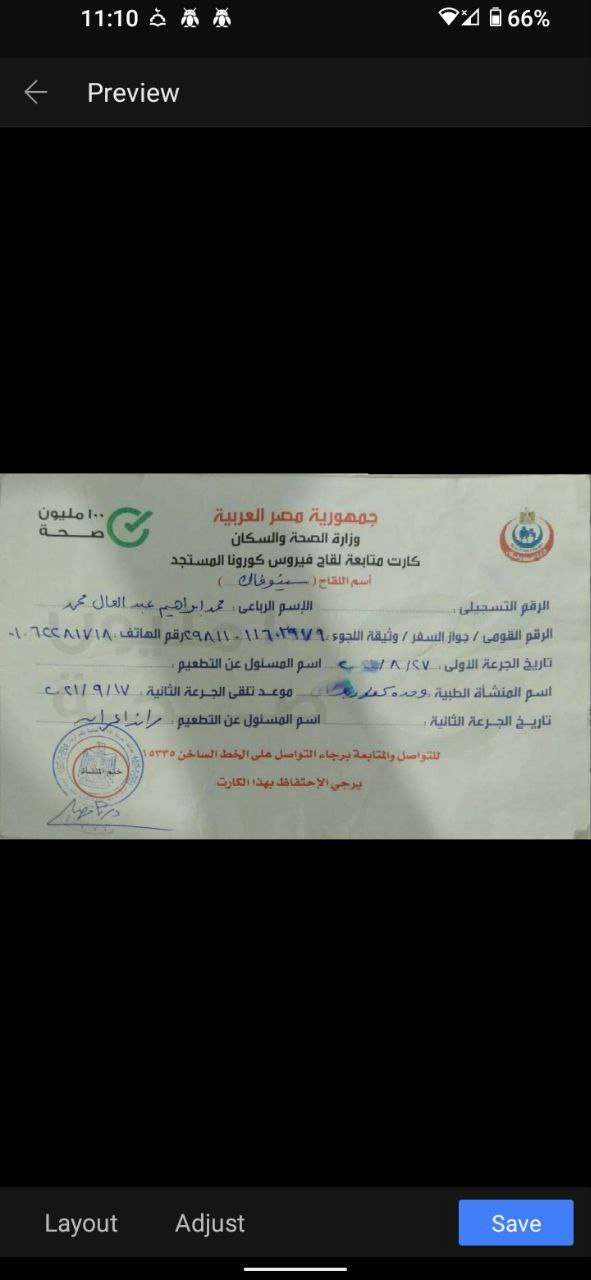 11:10
66%
Preview
١٠٠ مليون
صحة
جمهورية مصر العربية
وزارة الصحة والسكان
كارت متابعة لقاح فيروس كورونا المستجد
أسم اللقاح ( سينوفاك )
الرقم التسجيلى : الإسم الرباعى : محمد ابراهيم عبد العال محمد
الرقم القومى / جواز السفر / وثيقة اللجوء : رقم الهاتف : ٠١٠٦٢٢٨١٧١٨
تاريخ الجرعة الأولى : ٢٧/٨/ اسم المسئول عن التطعيم :
اسم المنشأة الطبية : وحده موعد تلقى الجرعة الثانية : ٢٠٢١/٩/١٧
تاريخ الجرعة الثانية : اسم المسئول عن التطعيم :
للتواصل والمتابعة برجاء التواصل على الخط الساخن ١٥٣٣٥
يرجي الإحتفاظ بهذا الكارت
خاتم المنشأة
Layout
Adjust
Save